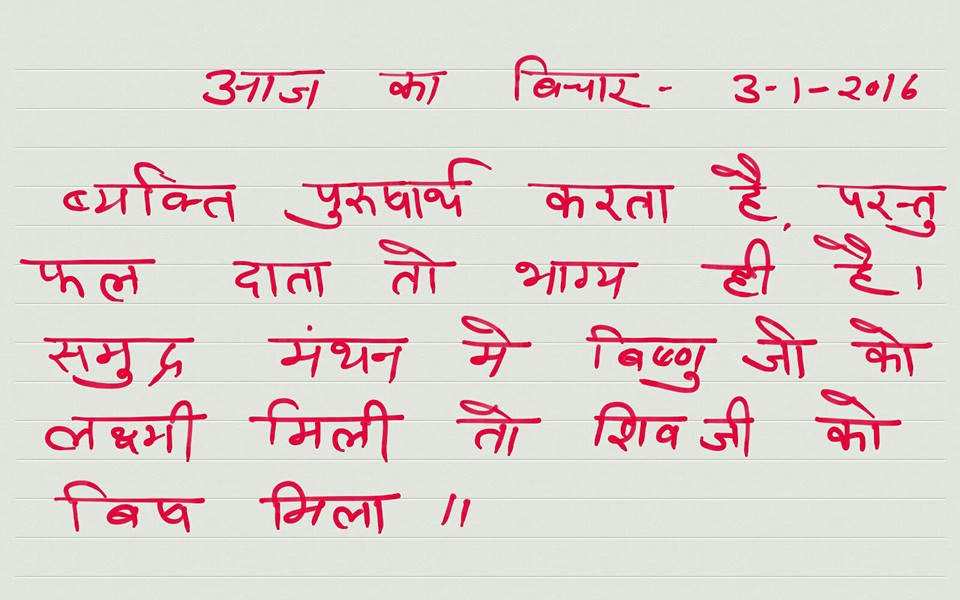 आज का बिचार - 3-1-2016
ब्यक्ति पुरुषार्थ करता है, परन्तु
फल दाता तो भाग्य ही है।
समुद्र मंथन मे बिष्णु जी को
लक्ष्मी मिली तो शिव जी को
बिष मिला ॥